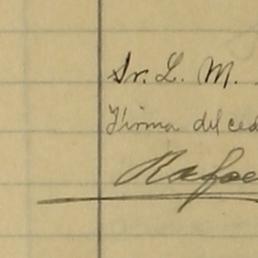 Sr. L. M.
Firma del ced
Rafae